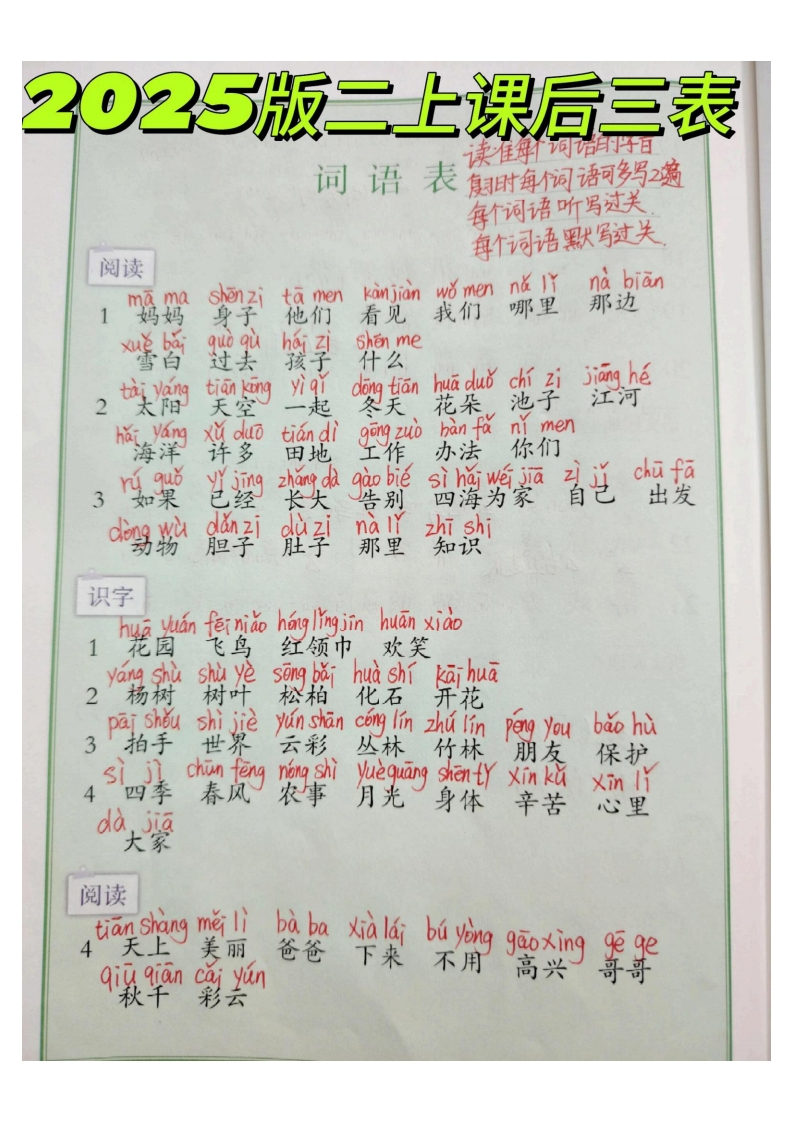 2025版二上课后三表
读准每个词语的字音
词语表
复习时每个词语可多写2遍
每个词语听写过关.
每个词语默写过关.
阅读
mā ma shēn zi tā men kàn jiàn wǒ men nǎ lǐ nà biān
1 妈妈 身子 他们 看见 我们 哪里 那边
xuě bái guò qù hái zi shén me
雪白 过去 孩子 什么
tài yáng tiān kōng yì qǐ dōng tiān huā duǒ chí zi jiāng hé
2 太阳 天空 一起 冬天 花朵 池子 江河
hǎi yáng xǔ duō tián dì gōng zuò bàn fǎ nǐ men
海洋 许多 田地 工作 办法 你们
rú guǒ yǐ jīng zhǎng dà gào bié sì hǎi wéi jiā zì jǐ chū fā
3 如果 已经 长大 告别 四海为家 自己 出发
dòng wù dǎn zi dù zi nà lǐ zhī shi
动物 胆子 肚子 那里 知识
识字
huā yuán fēi niǎo hóng lǐng jīn huān xiào
1 花园 飞鸟 红领巾 欢笑
yáng shù shù yè sōng bǎi huà shí kāi huā
2 杨树 树叶 松柏 化石 开花
pāi shǒu shì jiè yún shān cóng lín zhú lín péng you bǎo hù
3 拍手 世界 云彩 丛林 竹林 朋友 保护
sì jì chūn fēng nóng shì yuè guāng shēn tǐ xīn kǔ xīn lǐ
4 四季 春风 农事 月光 身体 辛苦 心里
dà jiā
大家
阅读
tiān shàng měi lì bà ba xià lái bú yòng gāo xìng gē ge
4 天上 美丽 爸爸 下来 不用 高兴 哥哥
qiū qiān cǎi yún
秋千 彩云